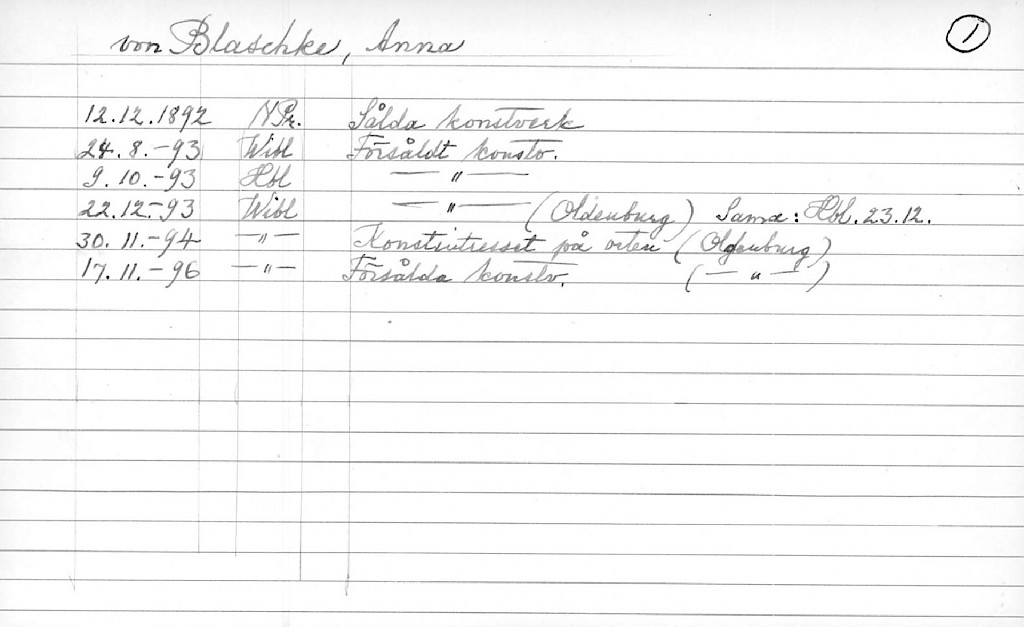 von Blaschke, Anna 1
12.12.1892 NPr. Sålda konstverk
24.8.-93 Wibl Försåldt konstv.
9.10.-93 Hbl — " —
22.12.-93 Wibl — " — (Oldenburg) Sama: Hbl. 23.12.
30.11.-94 — " — Konstintresset på orten (Oldenburg)
17.11.-96 — " — Försålda konstv. (— " —)